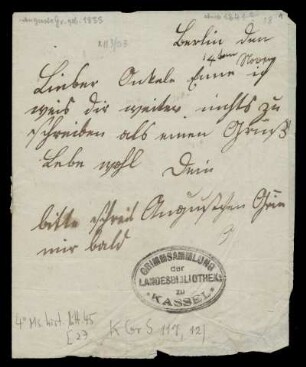 Berlin den
4ten Novem
Lieber Onkele Enne ich
weis dir weiter nichts zu
schreiben als einen Gruß
Lebe wohl Dein
bitte schreib Augustchen Grim
mir bald
GRIMMSAMMLUNG
der
LANDESBIBLIOTHEK
zu
KASSEL
4° Ms. hist. litt. 45
[23
K Gr S 117, 12/